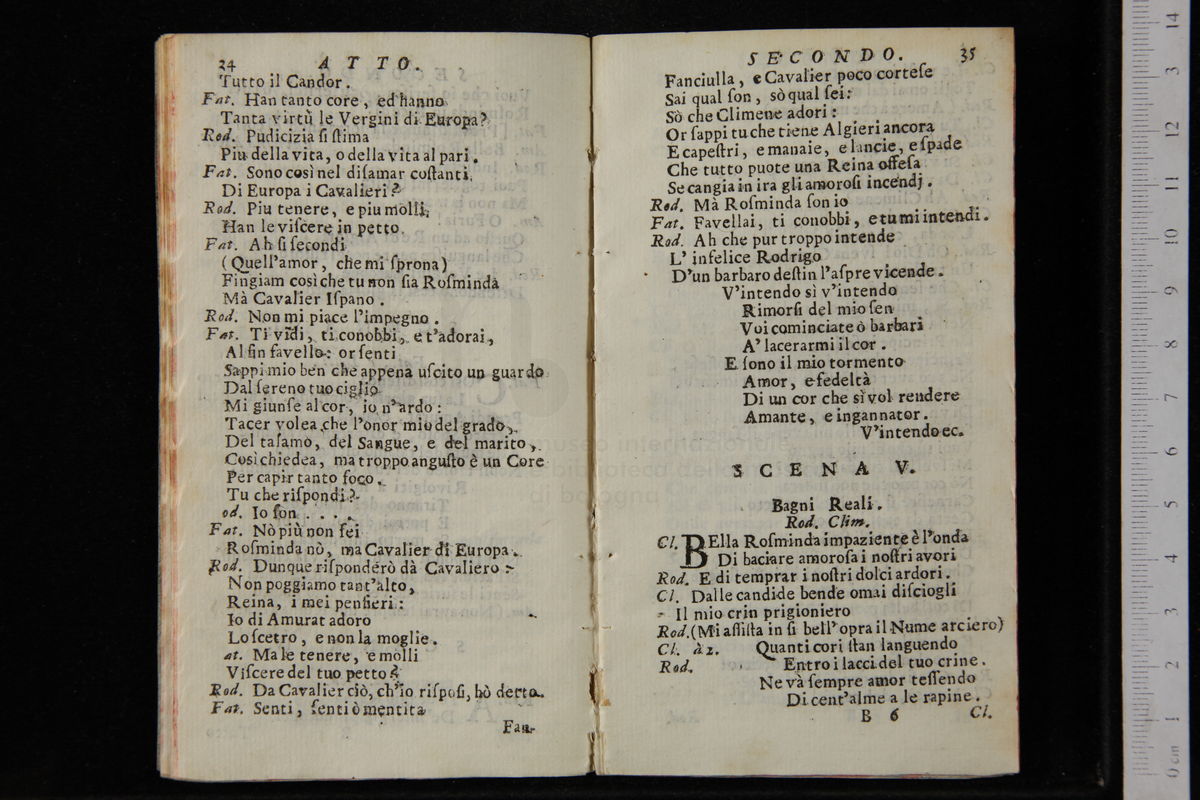 24 ATTO.
Tutto il Candor.
Fat. Han tanto core, ed hanno
Tanta virtù le Vergini di Europa?
Rod. Pudicizia ſi ſtima
Piu della vita, o della vita al pari.
Fat. Sono così nel diſamar coſtanti
Di Europa i Cavalieri?
Rod. Piu tenere, e piu molli,
Han le viſcere in petto.
Fat. Ah ſi ſecondi
(Quell'amor, che mi ſprona)
Fingiam così che tu non ſia Roſminda
Mà Cavalier Iſpano.
Rod. Non mi piace l'impegno.
Fat. Ti vidi, ti conobbi, e t'adorai,
Al fin favello: or ſenti
Sappi mio ben che appena uſcito un guardo
Dal ſereno tuo ciglio
Mi giunſe al cor, io n'ardo:
Tacer volea che l'onor mio del grado,
Del talamo, del Sangue, e del marito,
Così chiedea, ma troppo anguſto è un Core
Per capir tanto foco.
Tu che riſpondi?
od. Io ſon....
Fat. Nò più non ſei
Roſminda nò, ma Cavalier di Europa.
Rod. Dunque riſponderò dà Cavaliero:
Non poggiamo tant'alto,
Reina, i mei penſieri:
Io di Amurat adoro
Lo ſcetro, e non la moglie.
at. Ma le tenere, e molli
Viſcere del tuo petto?
Rod. Da Cavalier ciò, ch'io riſpoſi, hò detto.
Fat. Senti, ſenti ò mentita
Fan-
SECONDO. 35
Fanciulla, e Cavalier poco corteſe
Sai qual ſon, sò qual ſei:
Sò che Climene adori:
Or ſappi tu che tiene Algieri ancora
E capeſtri, e manaie, e lancie, e ſpade
Che tutto puote una Reina offeſa
Se cangia in ira gli amoroſi incendj.
Rod. Mà Roſminda ſon io
Fat. Favellai, ti conobbi, e tu mi intendi.
Rod. Ah che pur troppo intende
L' infelice Rodrigo
D'un barbaro deſtin l'aſpre vicende.
V'intendo sì v'intendo
Rimorſi del mio ſen
Voi cominciate ò barbari
A' lacerarmi il cor.
E ſono il mio tormento
Amor, e fedeltà
Di un cor che sì vol rendere
Amante, e ingannator.
V'intendo ec.
SCENA V.
Bagni Reali.
Rod. Clim.
Cl. BElla Roſminda impaziente è l'onda
Di baciare amoroſa i noſtri avori
Rod. E di temprar i noſtri dolci ardori.
Cl. Dalle candide bende omai diſciogli
Il mio crin prigioniero
Rod. (Mi aſſiſta in ſi bell' opra il Nume arciero)
Cl. à 2. Quanti cori ſtan languendo
Rod. Entro i lacci del tuo crine.
Ne và ſempre amor teſſendo
Di cent'alme a le rapine.
B 6 Cl.
museo internazionale
biblioteca della musica
di bologna
0 cm 1 2 3 4 5 6 7 8 9 10 11 12 13 14